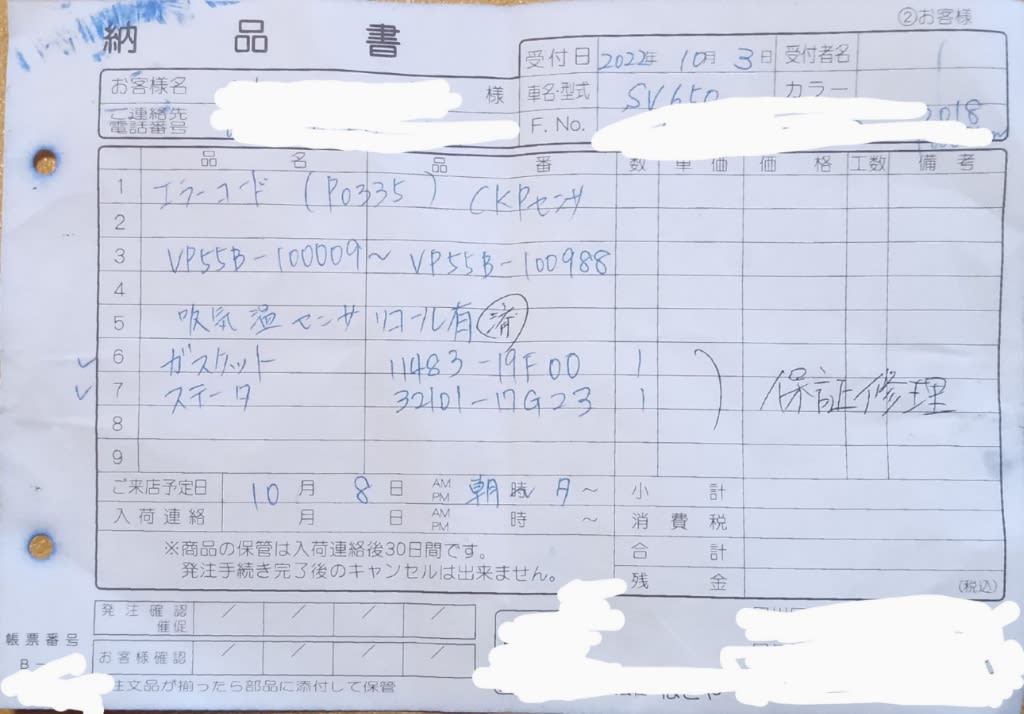 納品書
②お客様
受付日 2022年 10月 3日 受付者名
お客様名 様
車名・型式 SV650 カラー
ご連絡先
電話番号
F. No. 2018
品名 品番 数 単価 価格 工数 備考
1 エラーコード (P0335) CKPセンサ
2
3 VP55B-100009〜VP55B-100988
4
5 吸気温センサ リコール有 済
6 ガスケット 11483-19F00 1
7 ステータ 32101-17G23 1 保証修理
8
9
ご来店予定日 10月 8日 AM PM 朝 時 夕 〜 小計
入荷連絡 月 日 AM PM 時 〜 消費税
※商品の保管は入荷連絡後30日間です。 合計
発注手続き完了後のキャンセルは出来ません。 残金 (税込)
発注確認
催促
帳票番号
お客様確認
B-
注文品が揃ったら部品に添付して保管